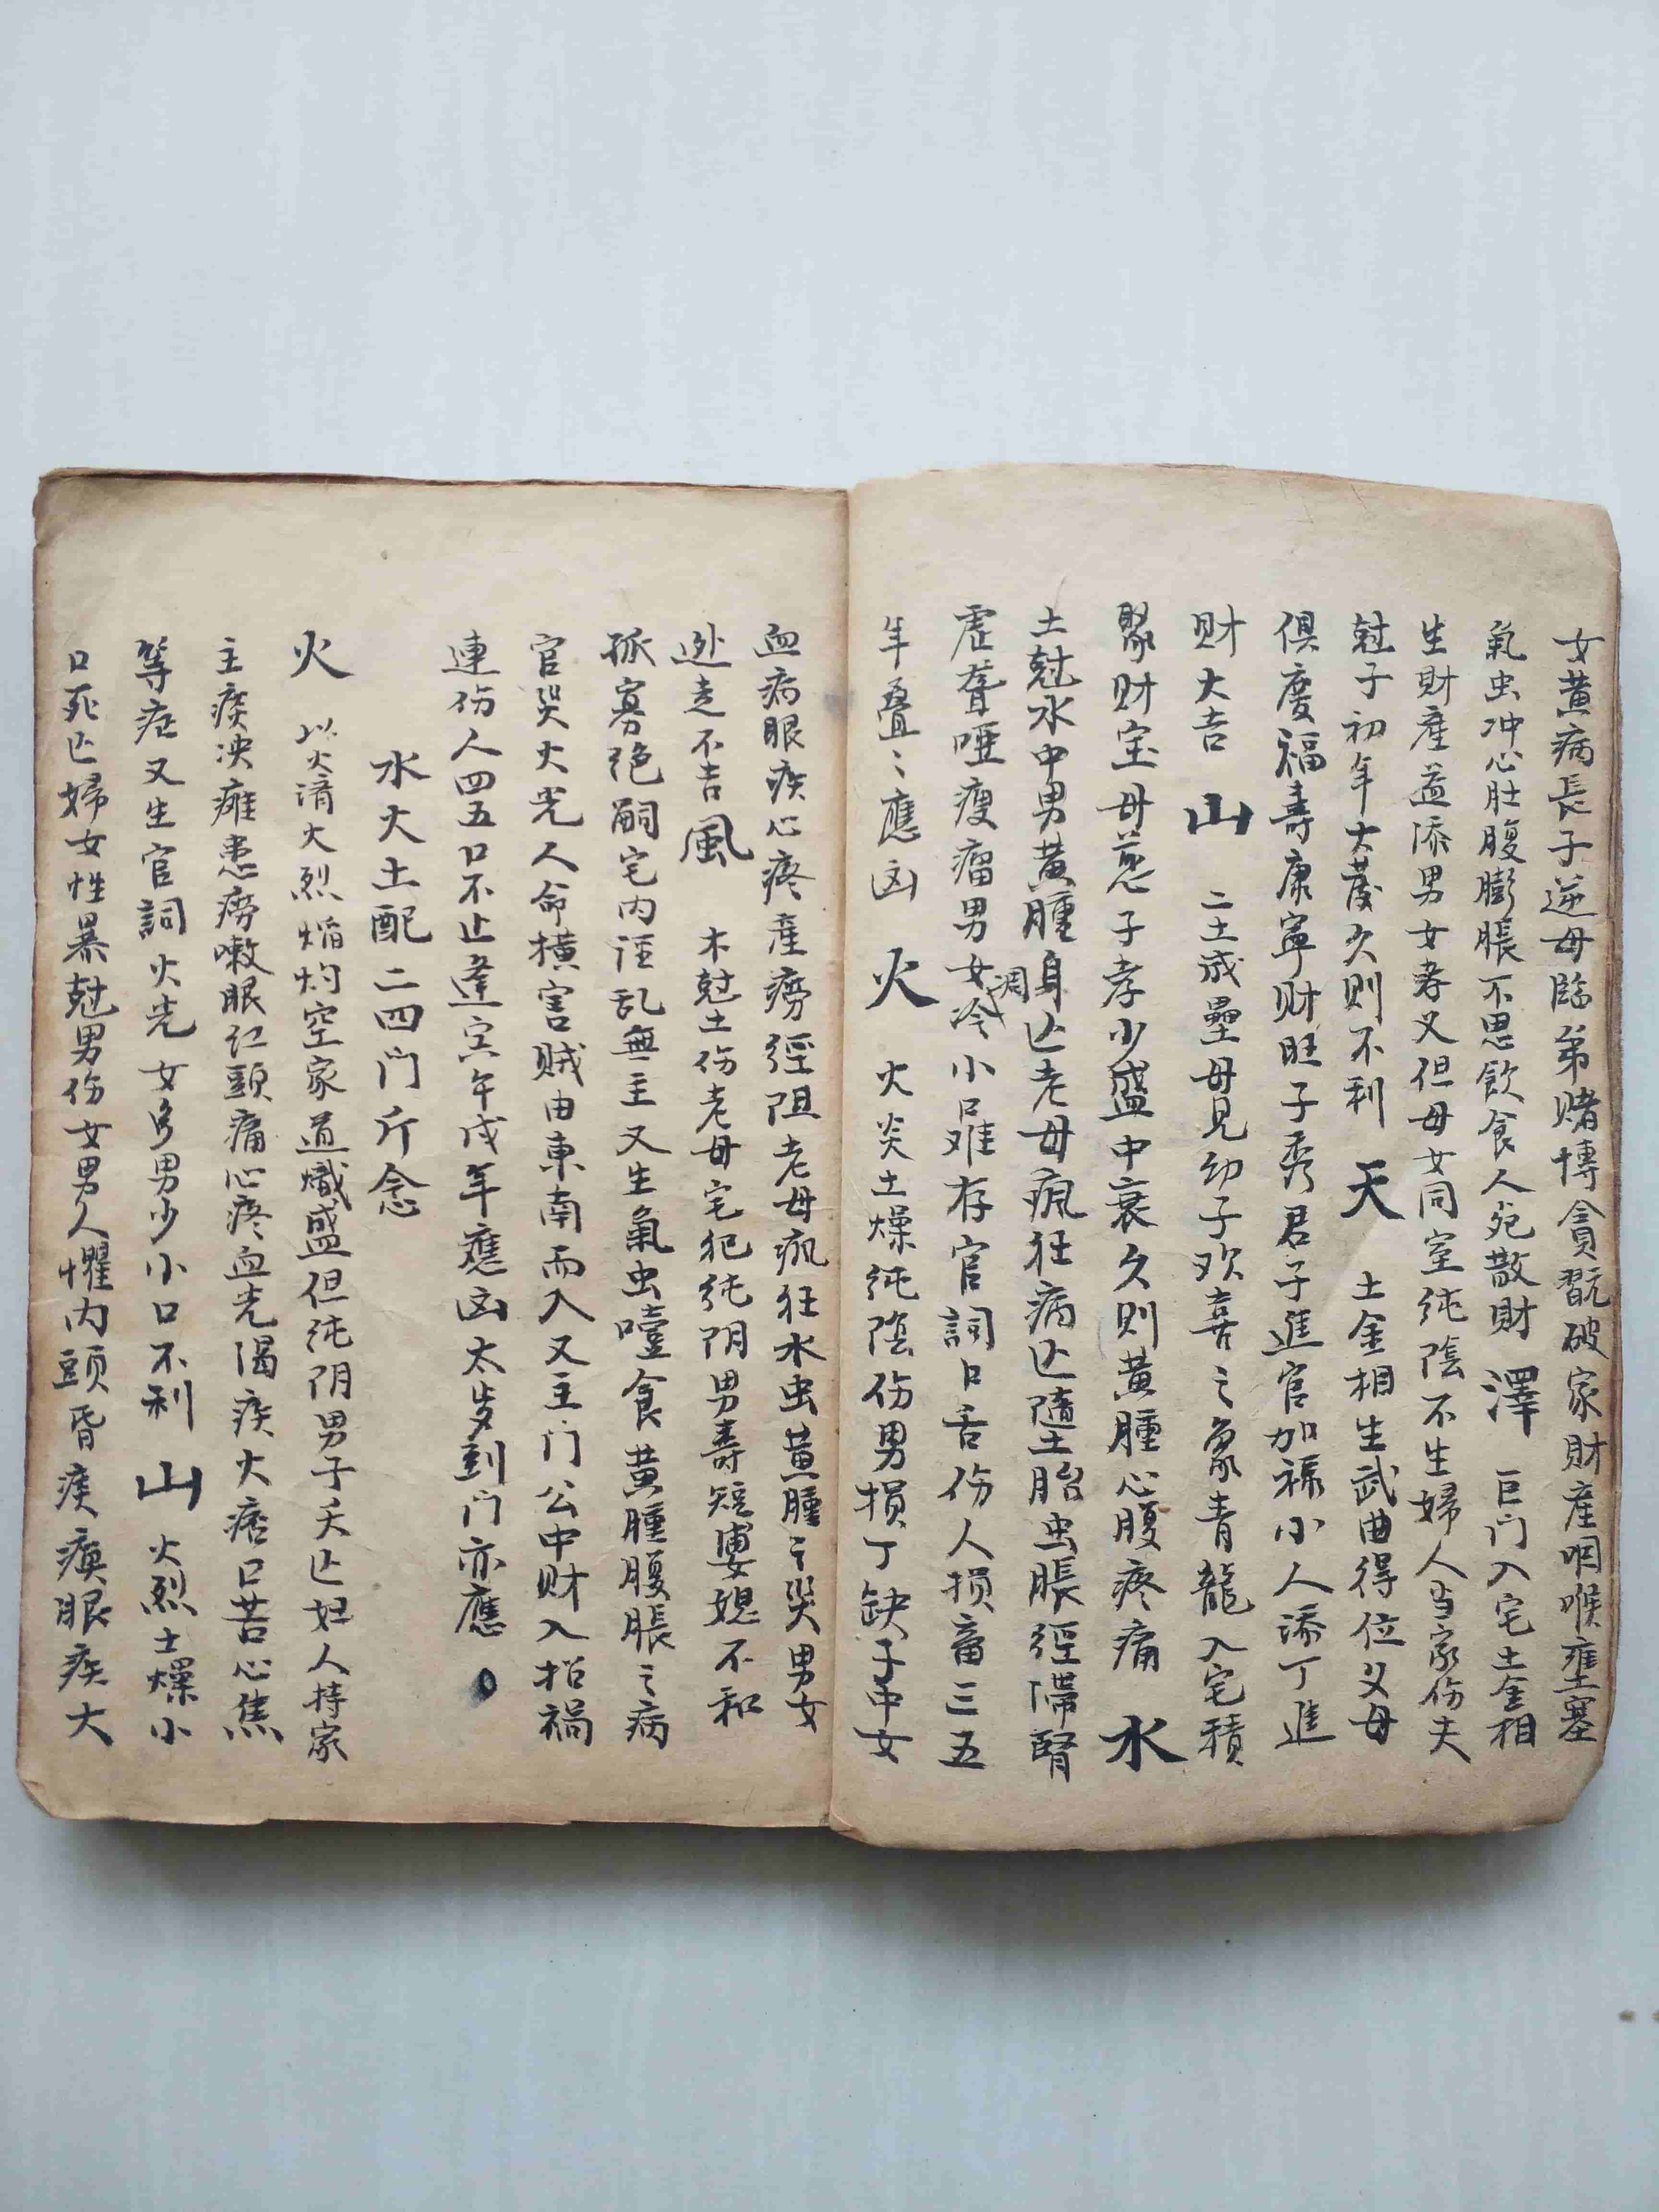 女黄病長子逆母臨弟赌博貪翫破家財產咽喉壅塞
氣虫冲心肚腹膨脹不思飲食人死散财 澤 巨门入宅土金相
生财產益添男女孝义但母女同室纯陰不生婦人当家伤夫
尅子初年大發久则不利 天 土金相生武曲得位父母
俱慶福壽康寧财旺子秀君子進官加禄小人添丁進
财大吉 山 二土成壘母見幼子欢喜之象青龍入宅積
聚财宝母慈子孝少盛中衰久则黄腫心腹疼痛 水
土尅水中男黄腫身亡老母疯狂病亡墮胎虫脹經滞腎
虚聋哑瘦瘤男女冷凋小口难存官詞口舌伤人损畜三五
年叠〻應凶 火 火炎土燥纯陰伤男损丁缺子中女
血病眼疾心疼產痨經阻老母疯狂水虫黄腫之災男女
逃走不吉 風 木尅土伤老母宅犯纯阴男壽短婆媳不和
孤寡绝嗣宅内淫乱無主又生氣虫噎食黄腫腹脹之病
官災火光人命横害贼由東南而入又主门公中财入招禍
連伤人四五口不止逢寅午戌年應凶太岁到门亦應
水火土配二四门斤念
火 以火濟火烈焰灼空家道熾盛但纯阴男子夭亡妇人持家
主痰决瘫患痨嗽眼红頭痛心疼血光渴疾大痞口苦心焦
等症又生官詞火光女多男少小口不利 山 火烈土燥小
口死亡婦女性暴尅男伤女男人懼内頭昏痰痪眼疾大